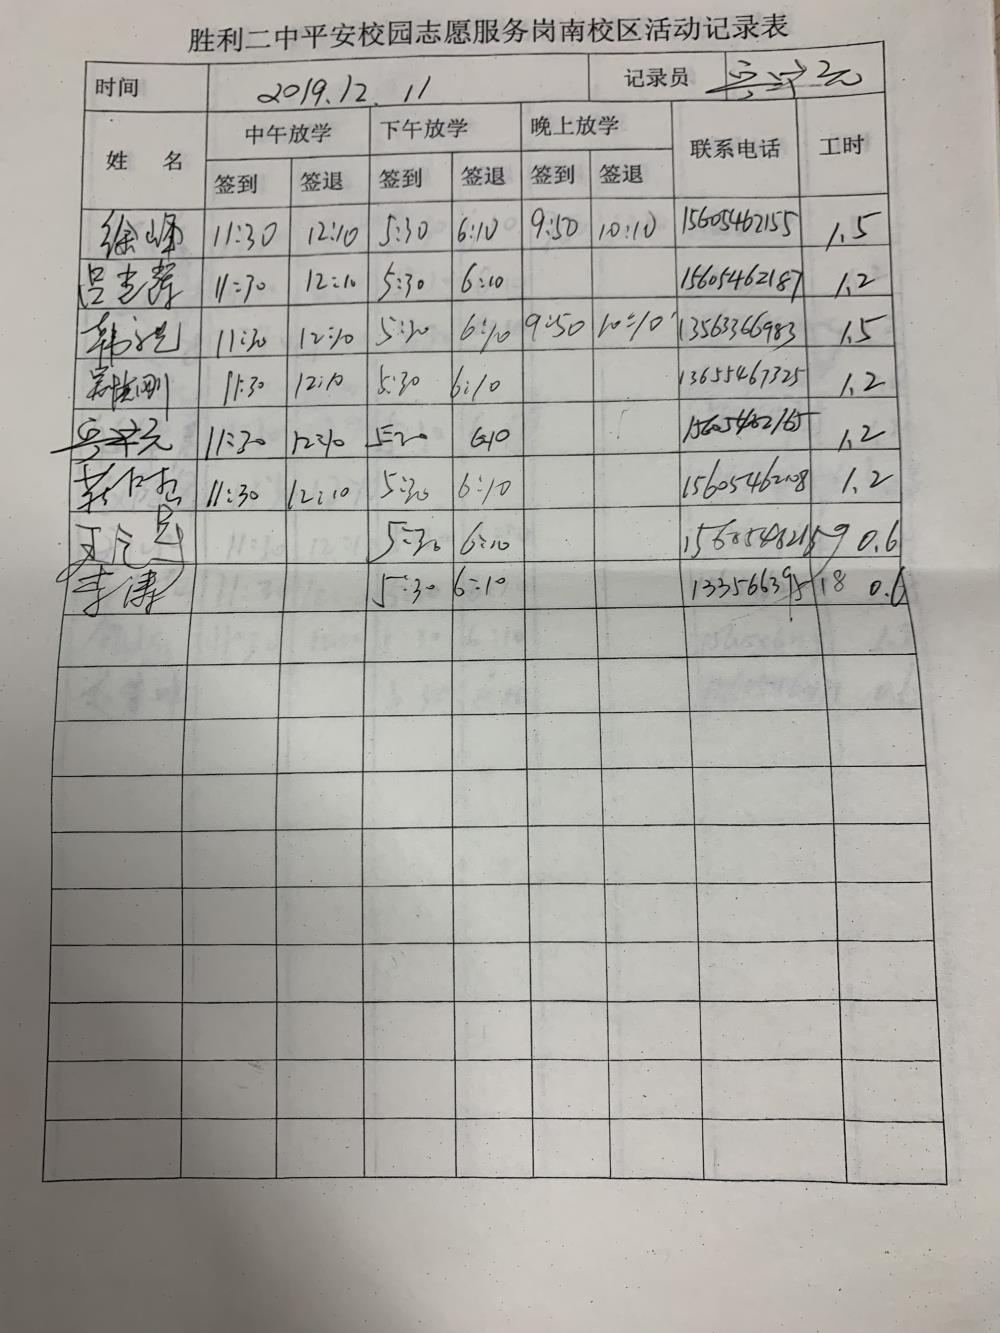 胜利二中平安校园志愿服务岗南校区活动记录表
时间 2019.12.11 记录员
姓名 中午放学 下午放学 晚上放学 联系电话 工时
签到 签退 签到 签退 签到 签退
徐峰 11:30 12:10 5:30 6:10 9:50 10:10 15605462155 1.5
11:30 12:10 5:30 6:10 15605462187 1.2
11:30 12:10 5:30 6:10 9:50 10:10 13563366983 1.5
11:30 12:10 5:30 6:10 13655467325 1.2
11:30 12:10 5:30 6:10 15605462165 1.2
11:30 12:10 5:30 6:10 15605462108 1.2
5:30 6:10 0.6
李涛 5:30 6:10 0.6